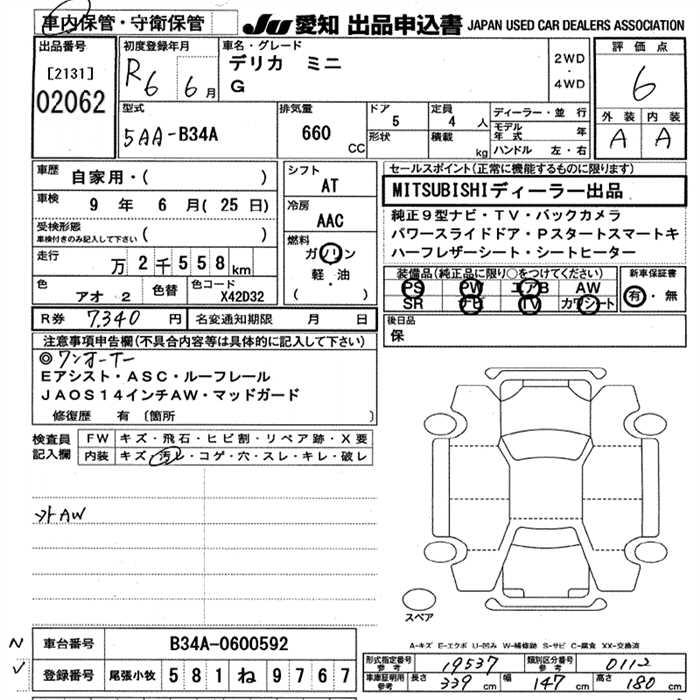 車内保管・守衛保管
JU 愛知 出品申込書 JAPAN USED CAR DEALERS ASSOCIATION
出品番号
[2131]
02062
初度登録年月
R6 6月
車名・グレード
デリカ ミニ
G
2WD
・
4WD
評価点
6
外装 内装
A A
型式
5AA-B34A
排気量
660
CC
ドア
5
形状
定員
4 人
積載
kg
ディーラー・並行
モデル年式 年
ハンドル 左・右
車歴
自家用・( )
車検
9 年 6 月( 25 日)
受検形態
車検付きのみ記入して下さい ( )
走行
万 2 千 5 5 8 km
色
アオ 2
色替
色コード
X42D32
シフト
AT
冷房
AAC
燃料
ガソリン
軽・油
( )
セールスポイント(正常に機能するものに限ります)
MITSUBISHIディーラー出品
純正9型ナビ・TV・バックカメラ
パワースライドドア・Pスタートスマートキ
ハーフレザーシート・シートヒーター
装備品(純正品に限り○をつけてください)
PS PW エアB AW
SR ナビ TV カワシート
新車保証書
有・無
R券 7,340 円
名変通知期限 月 日
後日品
保
注意事項申告欄(不具合内容等は具体的に記入して下さい)
◎ワンオーナー
Eアシスト・ASC・ルーフレール
JAOS14インチAW・マッドガード
修復歴 有 〔箇所 〕
検査員記入欄
FW キズ・飛石・ヒビ割・リペア跡・X要
内装 キズ・汚レ・コゲ・穴・スレ・キレ・破レ
外AW
スペア
A-キズ E-エクボ U-凹み W-補修跡 S-サビ C-腐食 XX-交換済
N 車台番号 B34A-0600592
✓ 登録番号 尾張小牧 581 ね 9767
形式指定番号 参考 19537
類別区分番号 参考 0112
車庫証明用参考 長さ 339 cm 幅 147 cm 高さ 180 cm